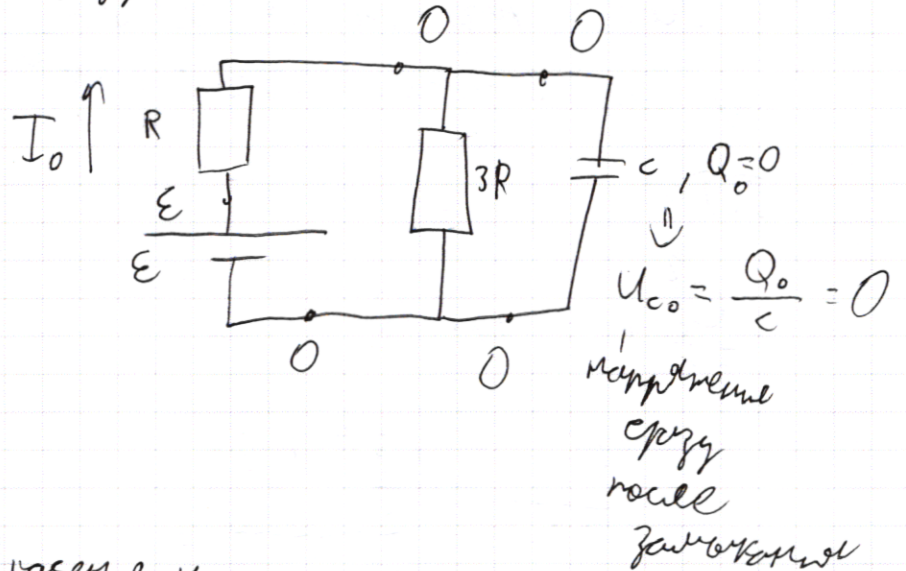 0 0
I₀
R
3R
c , Q₀=0
ε
ε
⇓
U_c₀ = Q₀/c = 0
0
0
напряжение
сразу
после
замыкания